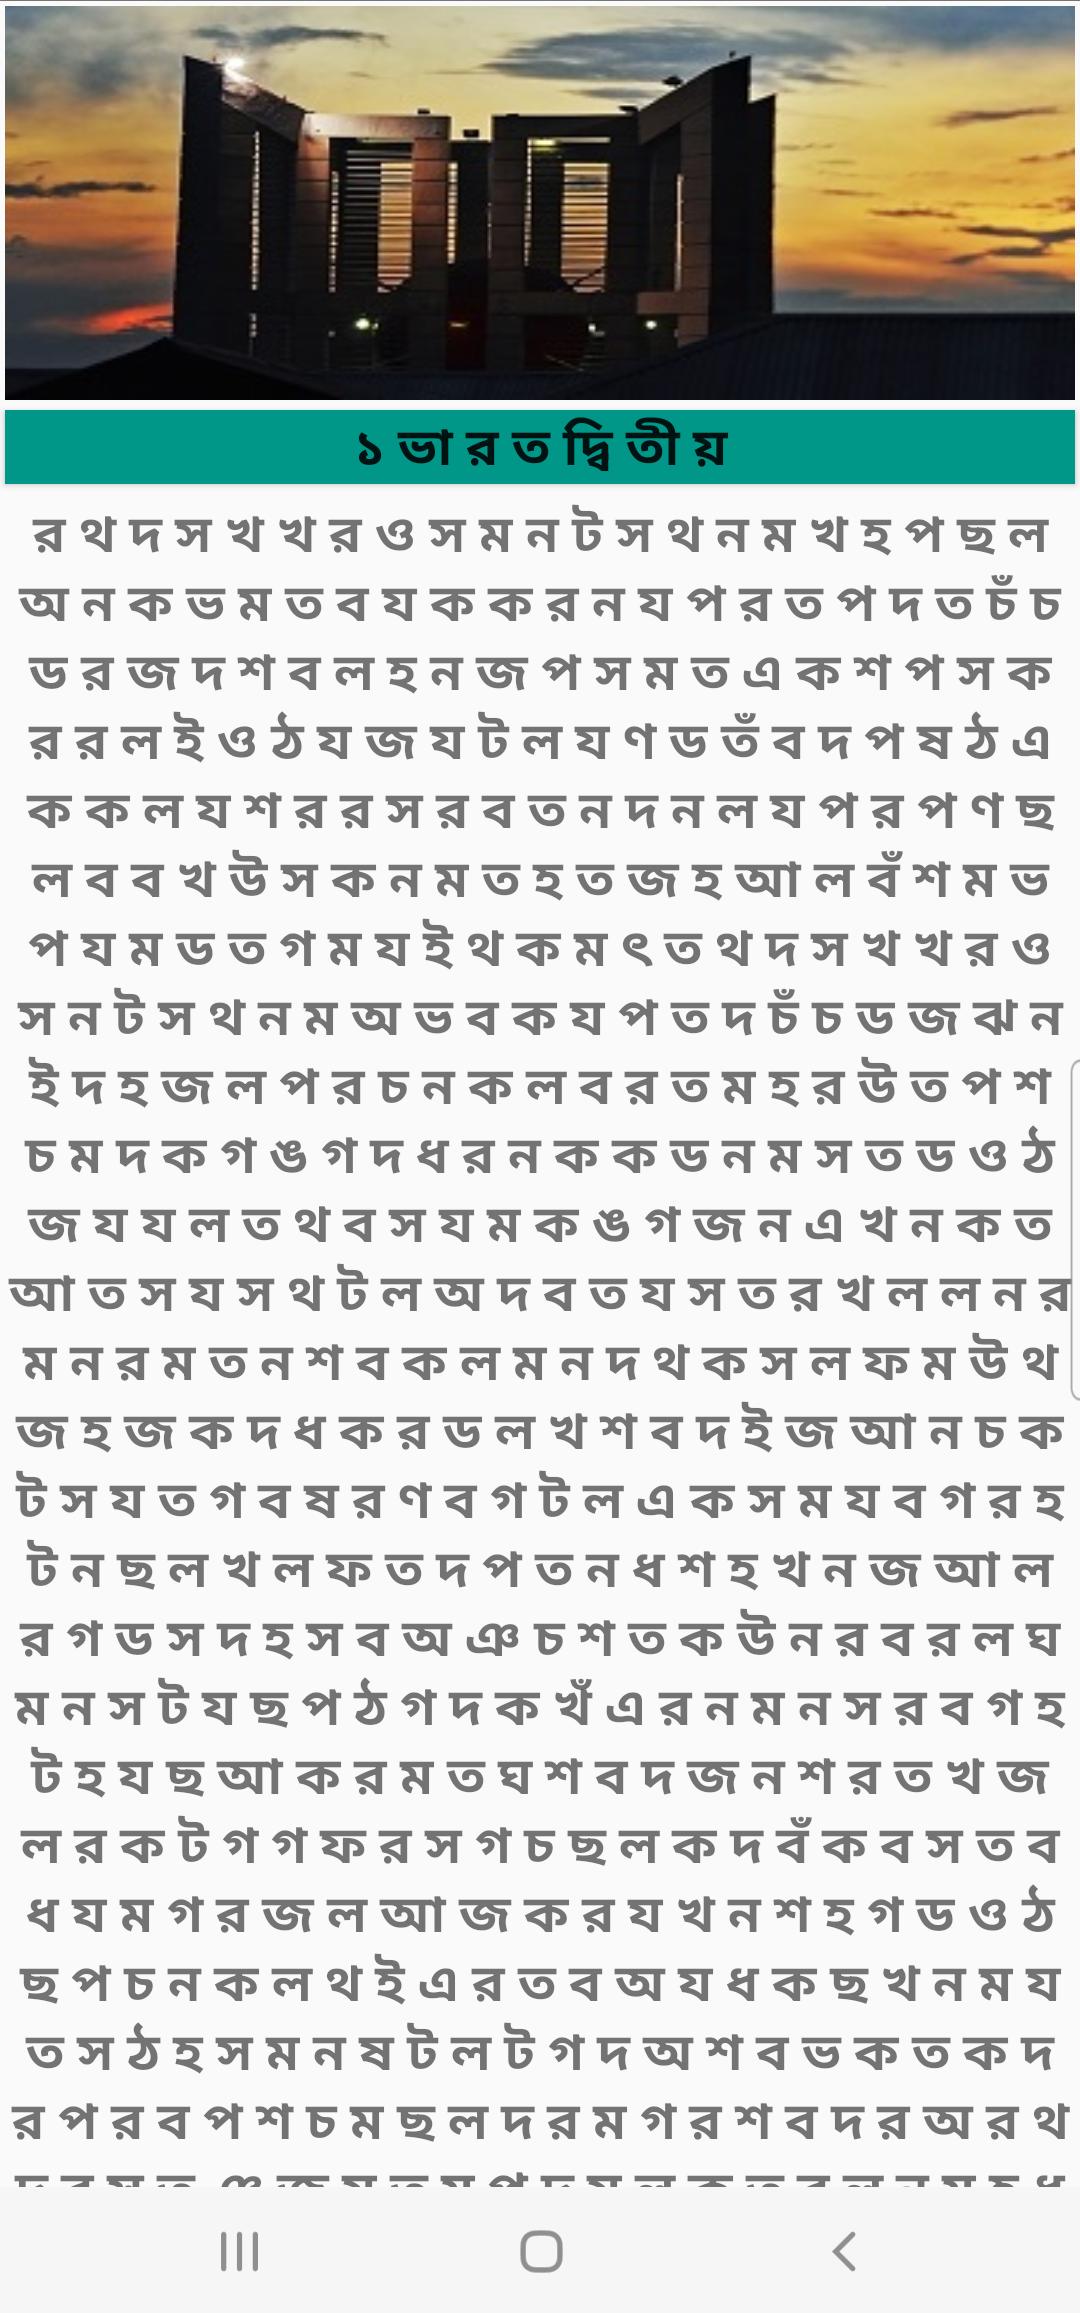 ১ ভা র ত দ্বি তী য়
র থ দ স খ খ র ও স ম ন ট স থ ন ম খ হ প ছ ল
অ ন ক ভ ম ত ব য ক ক র ন য প র ত প দ ত চঁ চ
ড র জ দ শ ব ল হ ন জ প স ম ত এ ক শ প স ক
র র ল ই ও ঠ য জ য ট ল য ণ ড তঁ ব দ প ষ ঠ এ
ক ক ল য শ র র স র ব ত ন দ ন ল য প র প ণ ছ
ল ব ব খ উ স ক ন ম ত হ ত জ হ আ ল বঁ শ ম ভ
প য ম ড ত গ ম য ই থ ক ম ৎ ত থ দ স খ খ র ও
স ন ট স থ ন ম অ ভ ব ক য প ত দ চঁ চ ড জ ঝ ন
ই দ হ জ ল প র চ ন ক ল ব র ত ম হ র উ ত প শ
চ ম দ ক গ ঙ গ দ ধ র ন ক ক ড ন ম স ত ড ও ঠ
জ য য ল ত থ ব স য ম ক ঙ গ জ ন এ খ ন ক ত
আ ত স য স থ ট ল অ দ ব ত য স ত র খ ল ল ন র
ম ন র ম ত ন শ ব ক ল ম ন দ থ ক স ল ফ ম উ থ
জ হ জ ক দ ধ ক র ড ল খ শ ব দ ই জ আ ন চ ক
ট স য ত গ ব ষ র ণ ব গ ট ল এ ক স ম য ব গ র হ
ট ন ছ ল খ ল ফ ত দ প ত ন ধ শ হ খ ন জ আ ল
র গ ড স দ হ স ব অ ঞ চ শ ত ক উ ন র ব র ল ঘ
ম ন স ট য ছ প ঠ গ দ ক খঁ এ র ন ম ন স র ব গ হ
ট হ য ছ আ ক র ম ত ঘ শ ব দ জ ন শ র ত খ জ
ল র ক ট গ গ ফ র স গ চ ছ ল ক দ বঁ ক ব স ত ব
ধ য ম গ র জ ল আ জ ক র য খ ন শ হ গ ড ও ঠ
ছ প চ ন ক ল থ ই এ র ত ব অ য ধ ক ছ খ ন ম য
ত স ঠ হ স ম ন ষ ট ল ট গ দ অ শ ব ভ ক ত ক দ
র প র ব প শ চ ম ছ ল দ র ম গ র শ ব দ র অ র থ